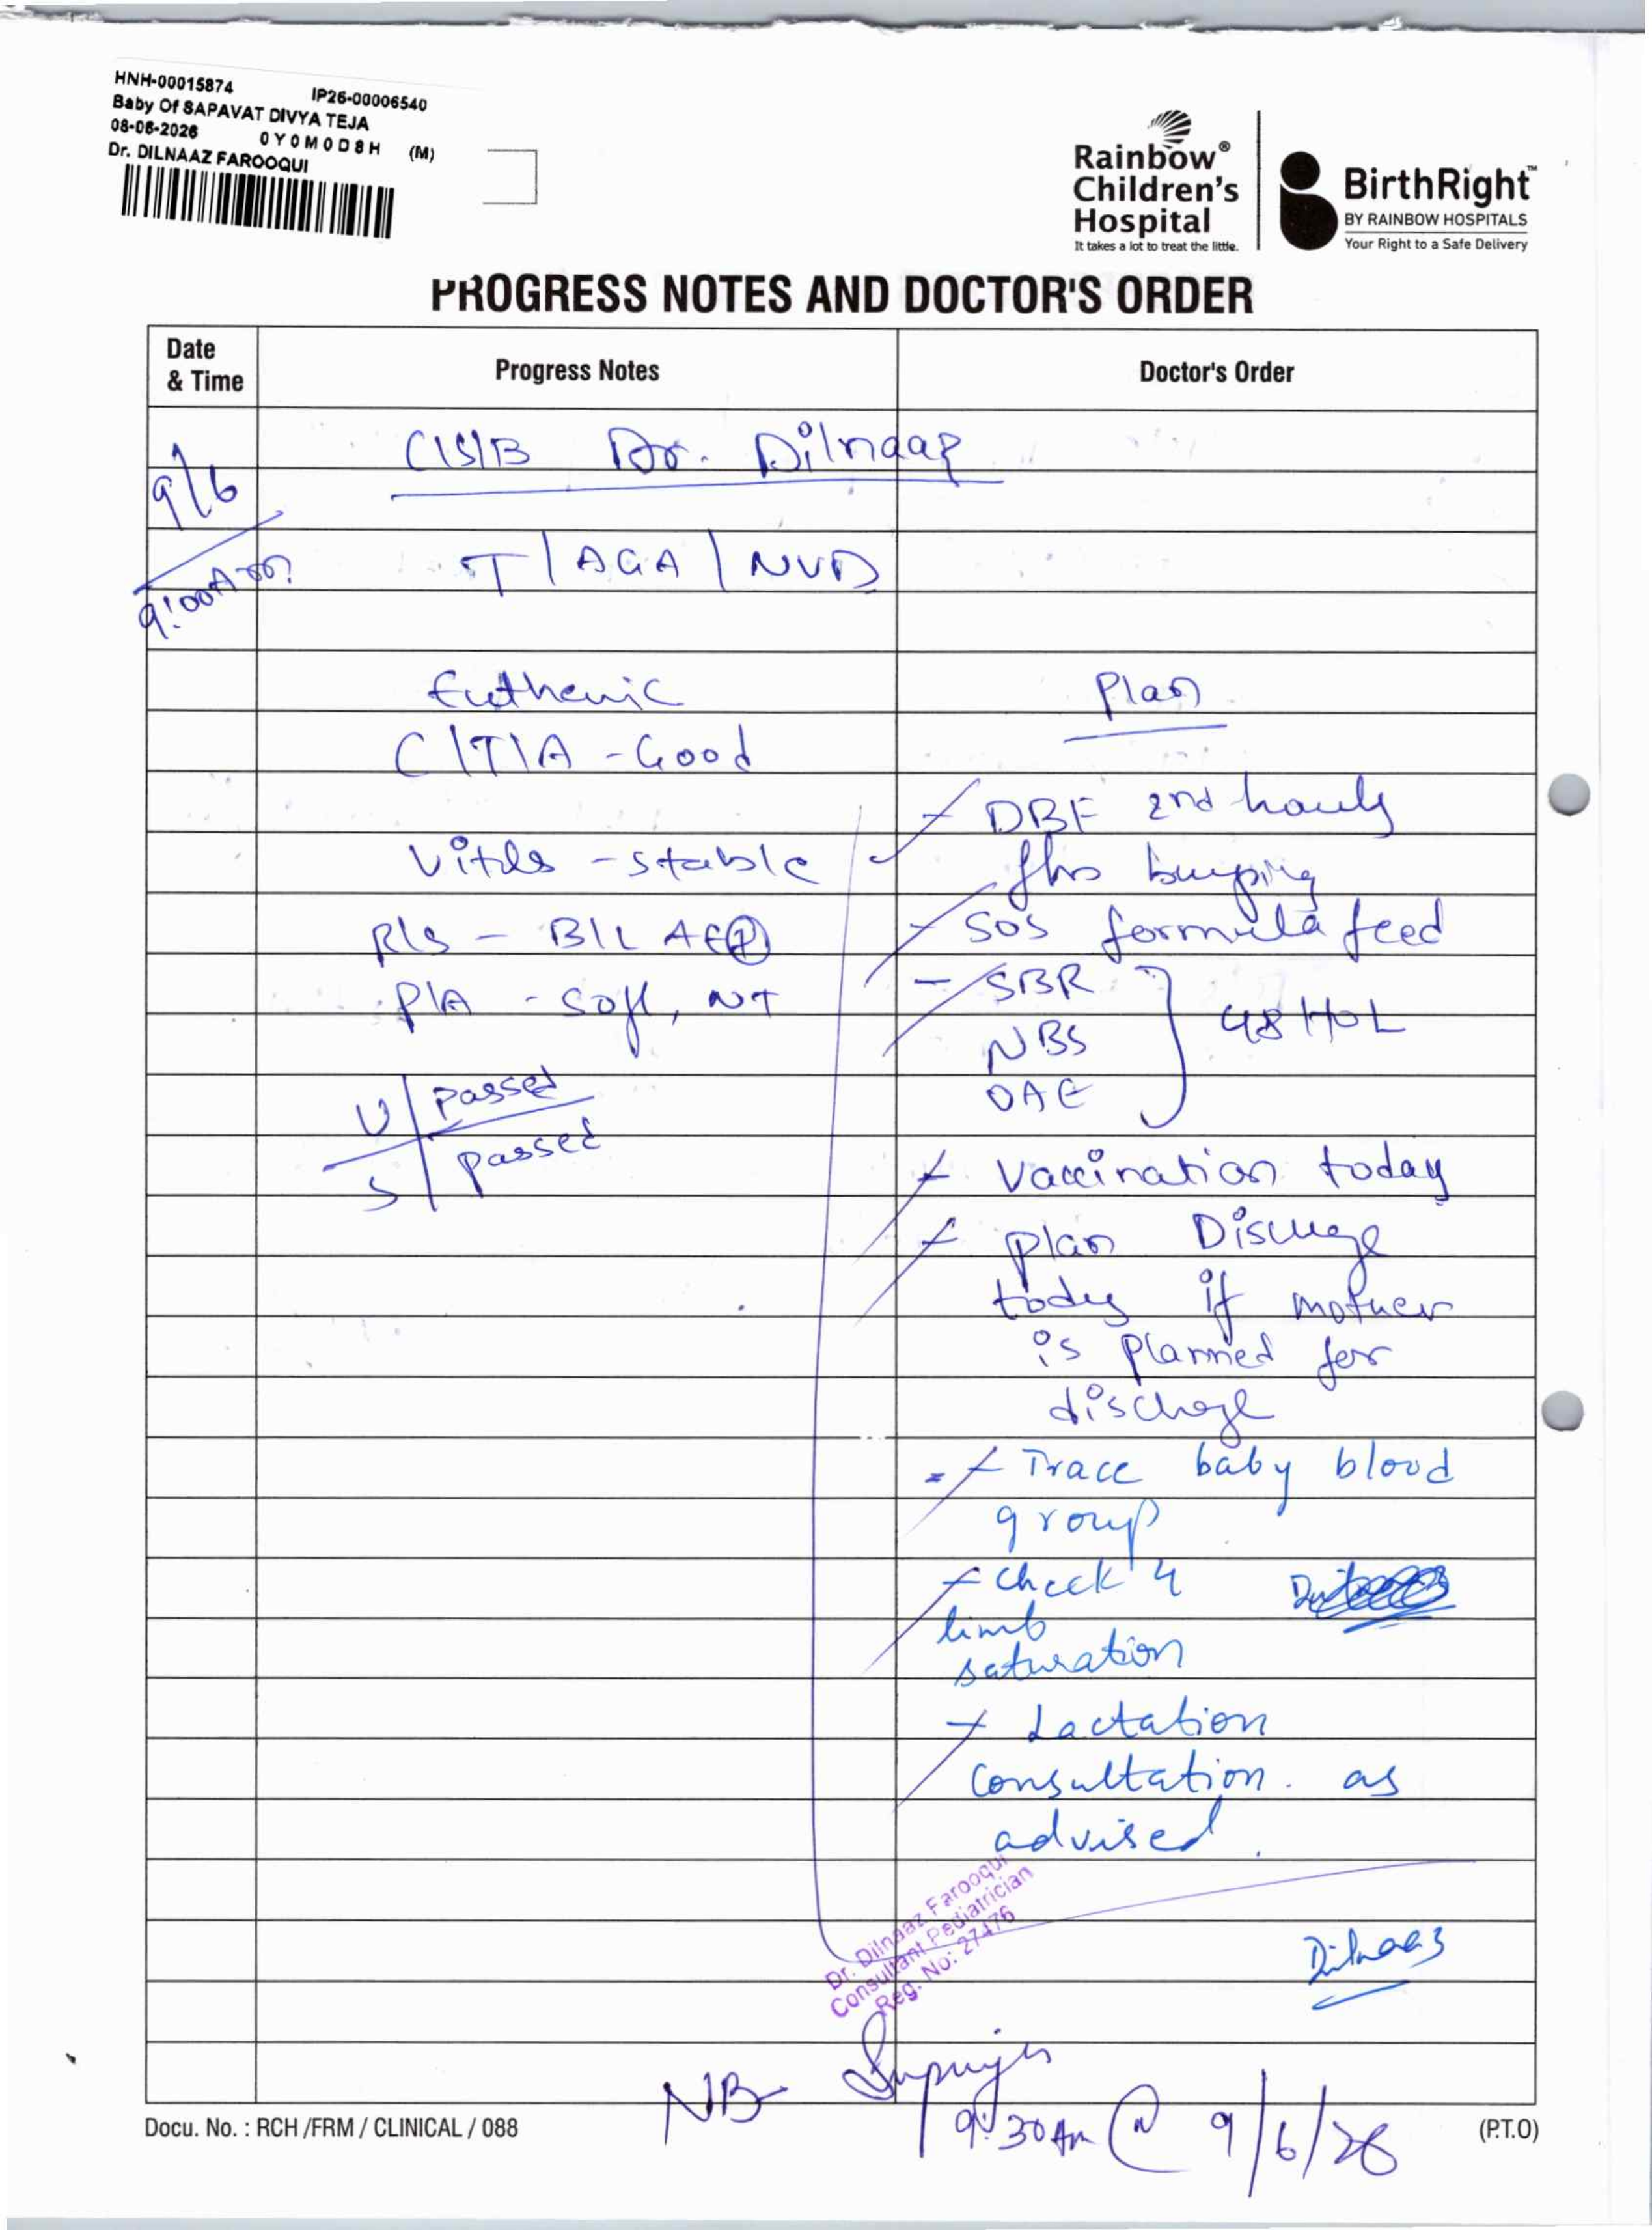 HNH-00015874 IP26-00006540
Baby Of SAPAVAT DIVYA TEJA
08-06-2026 0Y0M0D8H (M)
Dr. DILNAAZ FAROOQUI
Rainbow®
Children's
Hospital
It takes a lot to treat the little.
BirthRight™
BY RAINBOW HOSPITALS
Your Right to a Safe Delivery
PROGRESS NOTES AND DOCTOR'S ORDER
Date
& Time
Progress Notes
Doctor's Order
9/6
9:00Am
C/S/B Dr. Dilnaaz
T/AGA/NVD
Euthermic
C/T/A - Good
Vitals - stable
R/S - B/L AE(+)
P/A - soft, NT
U/passed
S/passed
Plan
- DBF 2nd hourly
burping
- SOS formula feed
- SBR
NBS
OAE
48 HOL
- Vaccination today
- plan Discharge
today if mother
is planned for
discharge
- Trace baby blood
group
- check 4
limb
saturation
- Lactation
consultation. as
advised.
Dr. Dilnaaz Farooqui
Consultant Pediatrician
Reg. No: 27476
Dilnaaz
NB
9:30Am @ 9/6/26
Docu. No. : RCH /FRM / CLINICAL / 088
(P.T.O)